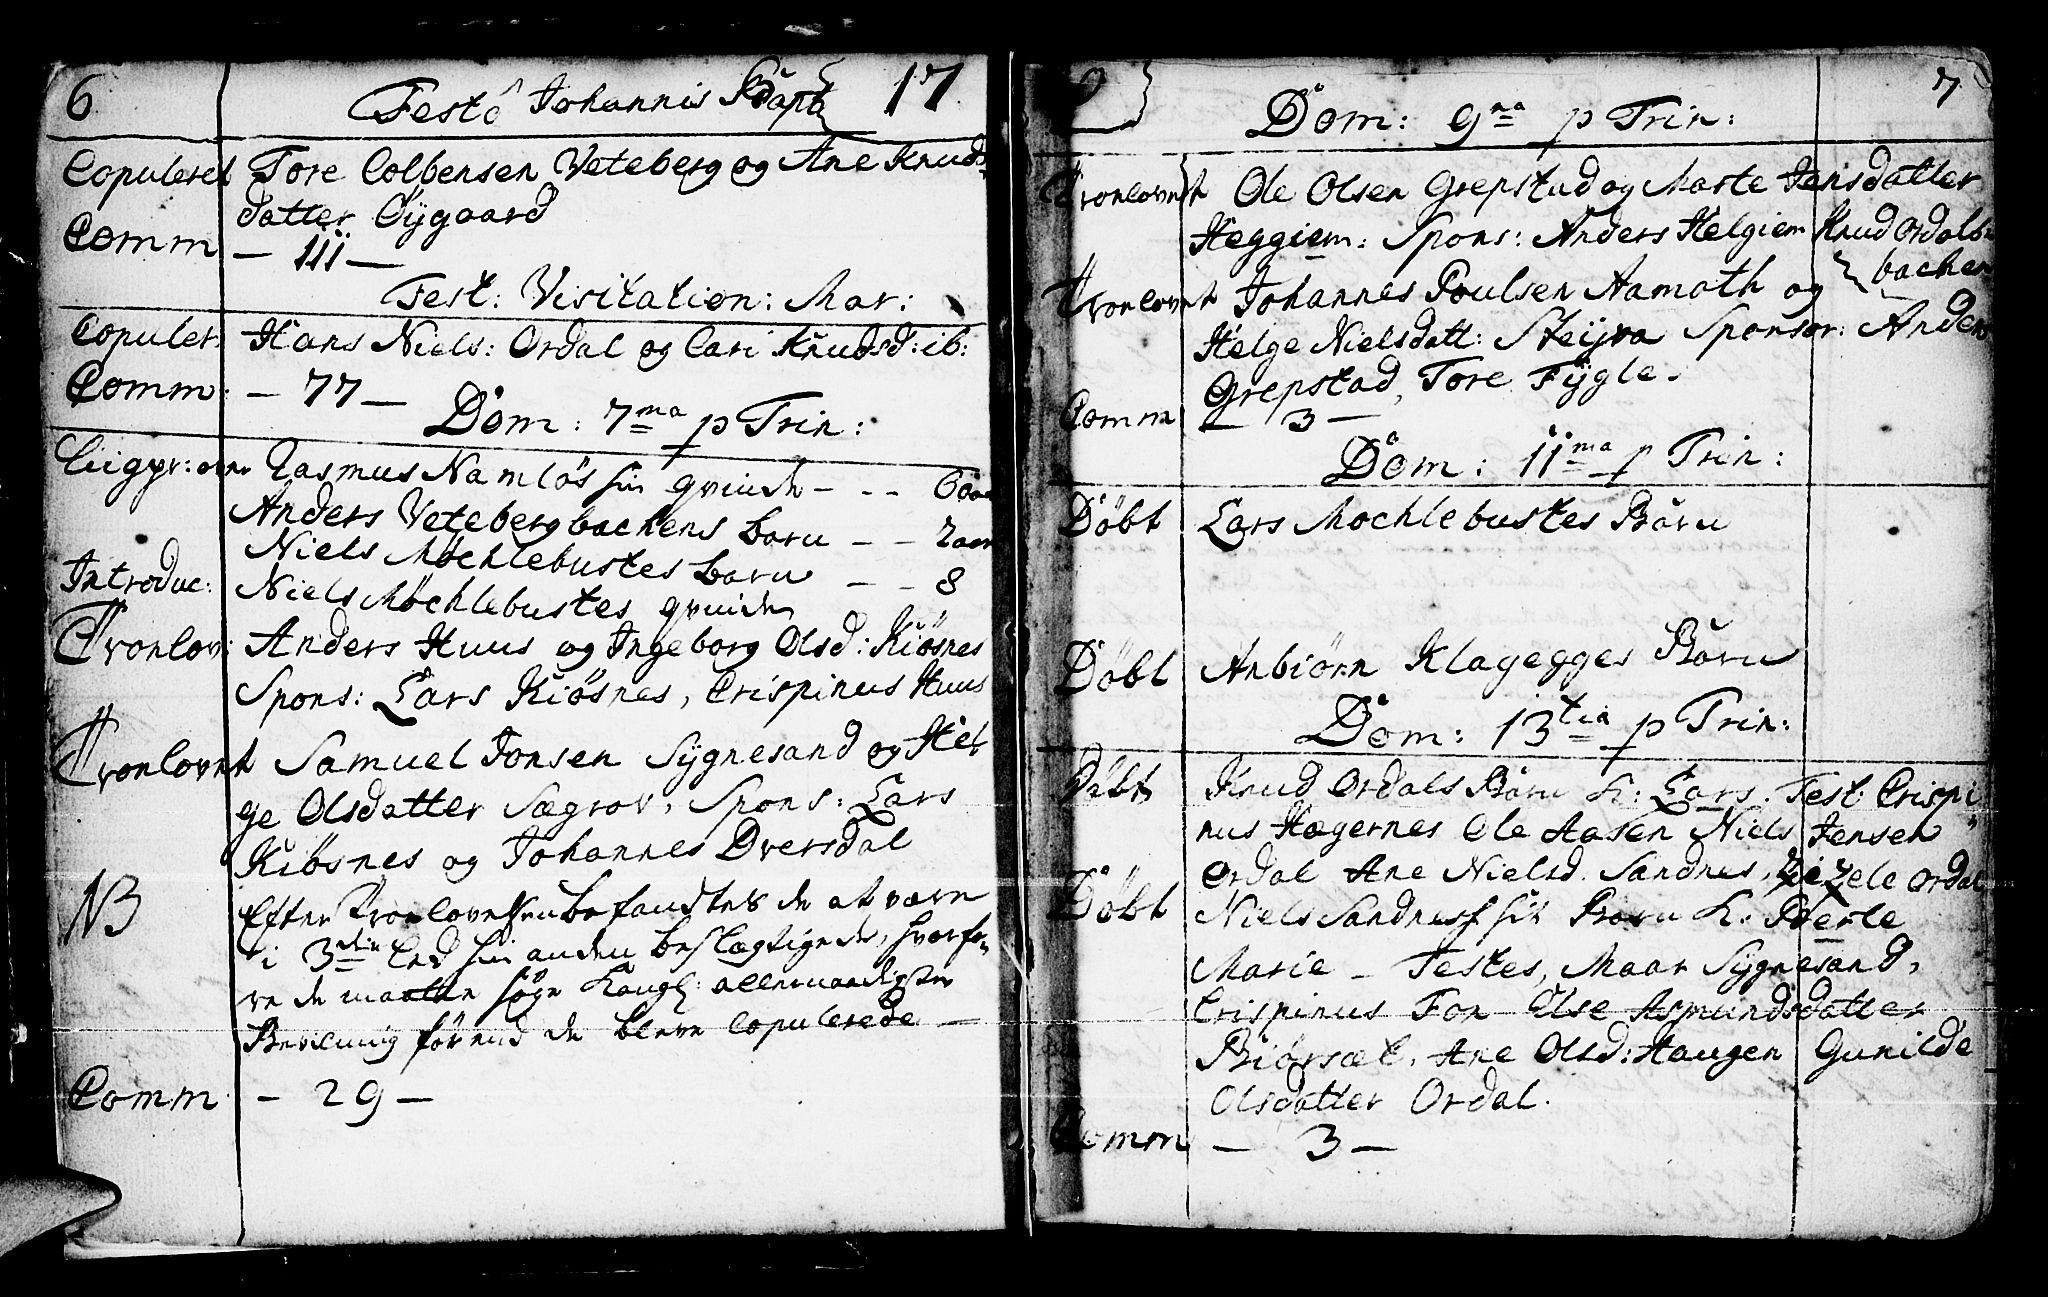 6
Festo Johannis Bapt: 17
Copuleret Tore Colbensen Veteberg og Ane Knuds-
datter Öygaard
Comm — 111 —
Fest: Visitation: Mar:
Copuler: Hans Niels: Ordal og Cari Knudsd: ib:
Comm: — 77 —
Dom: 7ma p Trin:
Rasmus Namløs sin qvinde - - - 60 aar
Anders Vetebergbachens barn - - 2 aar
Niels Möchlebustes barn - - 8
Introduc: Niels Möchlebustes qvinde
Trorlov: Anders Huus og Ingeborg Olsd: Kiösnes
Spons: Lars Kiösnes, Crispinus Huus
Trorlovet Samuel Jonsen Sÿgnesand og Hel-
ge Olsdatter Sægrov, Spons: Lars
Kiösnes og Johannes Dversdal
NB Efter Trorlovelsen befandtes de at være
i 3die Led sin anden beslægtigede, hvorfo-
re de maatte søge Kongl: allernaadigste
Bevilning förend de bleve Copulerede —
Comm — 29 —
7
Dom: 9na p Trin:
Trorlovet Ole Olsen Grepstad og Marte Jensdatter
Heggiem: Spons: Anders Helgiem Knud Ordals-
bachen
Trorlovet Johannes Poulsen Aamoth og
Helge Nielsdatt: Steÿra Sponsor: Anders
Grepstad, Tore Fÿgle.
Comm — 3 —
Dom: 11ma p Trin:
Döbt Lars Mochlebustes Barn
Döbt Anbiörn Klagegges Barn
Dom: 13tia p Trin:
Döbt Knud Ordals Barn k: Lars. Test: Crispi
nus Hægernes Ole Aasen Niels Jensen
Ordal Ane Nielsd. Sandnes, Zizele Ordal
Döbt Niels Sandness sit Barn k. Berle
Marie — Testes, Maar Sÿgnesand,
Crispinus Fon Else Asmundsdatter
Biörsæt, Ane Olsd: Haugen Gunilde
Olsdatter Ordal.
Comm — 3 —